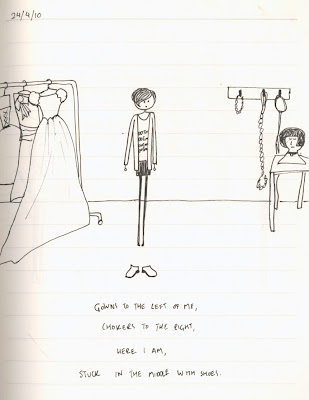 24/4/10
GOWNS TO THE LEFT OF ME,
CHOKERS TO THE RIGHT,
HERE I AM,
STUCK IN THE MIDDLE WITH SHOES.